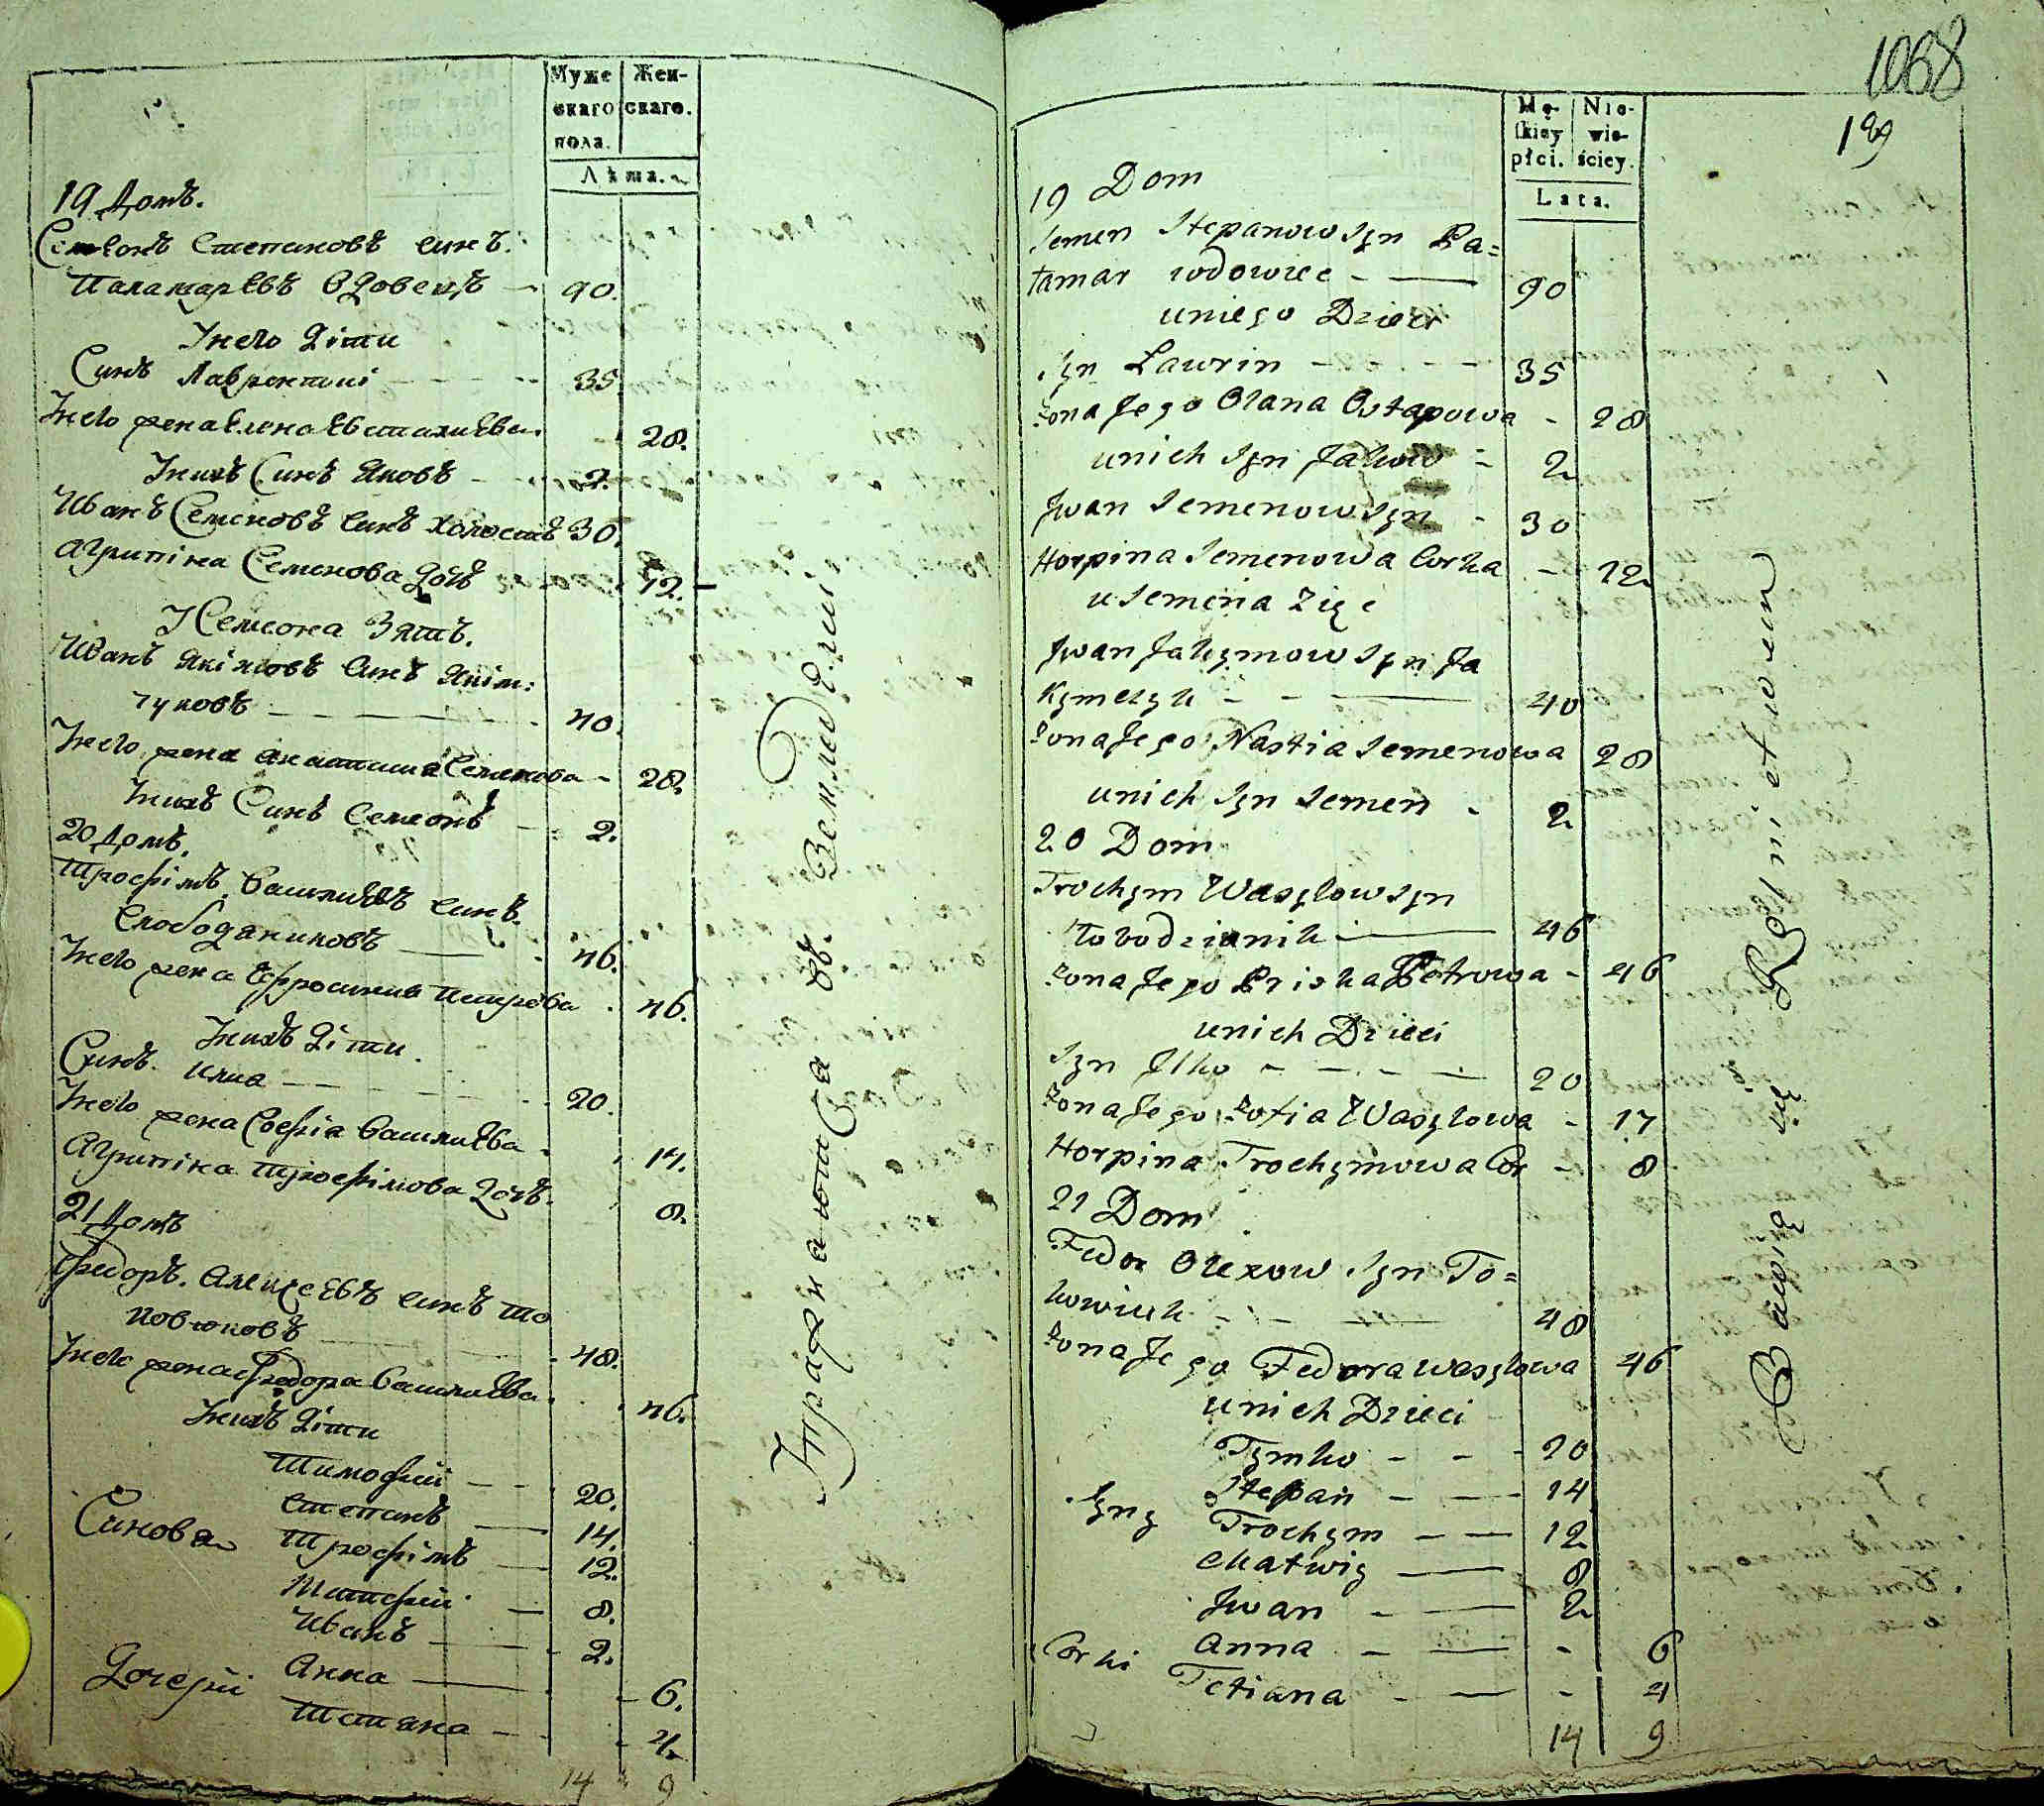 Муже
скаго
пола.
Жен-
скаго.
Лѣта.
19 Домъ.
Семіонъ Степановъ синъ.
Паламаревъ вдовецъ — 90.
Унего діти
Синъ Лаврентиі - - - 35.
Унего жена Елена Евстахиева. 28.
Унихъ Синъ Яковъ - - 2.
Иванъ Семеновъ синъ холостъ 30.
Агрипіна Семенова дочъ 12. -
У Семиона Зятъ.
Иванъ Якімовъ синъ Якім:
чуковъ — 40.
Унего жена Анастасиа Семенова - 28.
Унихъ Синъ Семеонъ - 2.
20 Домъ.
Трофімъ Василиевъ синъ.
Слободяниковъ — 46.
Унего жена Ефросиниа Петрова . 46.
Унихъ діти.
Синъ. Илиа - - - 20.
Унего жена Софіа Василиева - 17.
Агрипіна Трофімова дочъ. 8.
21 Домъ
Федоръ. Алексеевъ синъ То
повюковъ - 48.
Унего жена Федора Василиева. 46.
Унихъ діти
Тимофій - - 20.
Степанъ — 14.
Синова Трофімъ — 12.
Матфій — 8.
Иванъ — 2.
Дочерѣи Анна — 6.
Тетяна - 4.
14 9
Упражнаются въ Земледелии
1068
19
Mę-
skiey
płci.
Nie-
wie-
ściey.
Lata.
19 Dom
Semen Stepanow Syn Pa=
łamar wdowiec - — 90
uniego Dzieci
Syn Ławrin - - - - 35
żona Jego Olana Ostapowa - 28
unich Syn Jakow - 2
Jwan Semenow Syn - 30
Horpina Semenowa Corka - 12
u Semena Zięc
Jwan Jakymow Syn Ja
kymczyk - - — 40
żona Jego Nastia Semenowa 28
unich Syn Semen - 2
20 Dom
Trochym Wasylow Syn
łobodzianik — 46
żona Jego Priska Petrowa - 46
unich Dzieci
Syn Jlko - - - - 20
żona Jego Zofia Wasylowa - 17
Horpina Trochymowa Cor - 8
21 Dom
Fedor Olexow Syn To=
kowiuk - - — 48
żona Jego Fedora Wasylowa 46
unich Dzieci
Tymko - - - 20
Stepan - — 14
Syny Trochym - — 12
Matwiy — 8
Jwan - — 2
Corki Anna - — - 6
Tetiana - — - 4
14 9
Bawią się Rolnictwem